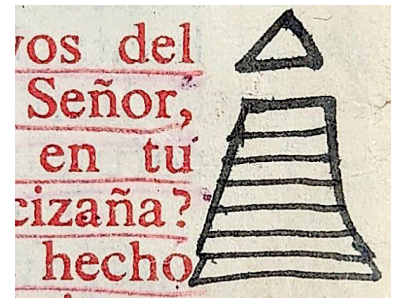 del
Señor,
en tú
cizaña?
hecho